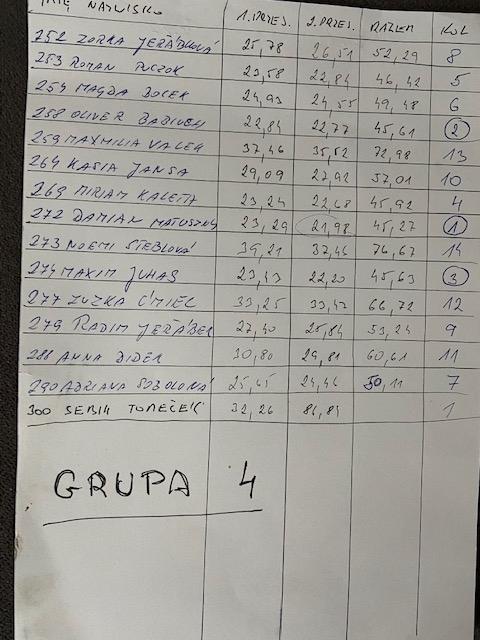 IMIĘ NAZWISKO 1.PRZEJ. 2.PRZEJ. RAZEM KOL
252 ZORKA JEŘÁBKOVÁ 25,78 26,51 52,29 8
253 ROMAN PUCZOK 23,58 22,84 46,42 5
254 MAGDA BOCEK 24,93 24,55 49,48 6
258 OLIVER 22,84 22,77 45,61 2
259 MAXMILIA VALEK 37,46 35,52 72,98 13
264 KASIA JANSA 29,09 27,92 57,01 10
269 MIRIAM KALETA 23,24 22,68 45,92 4
272 DAMIAN MATUSZNY 23,29 21,98 45,27 1
273 NOEMI STEBLOVÁ 39,21 37,46 76,67 14
274 MAXIM JUHAS 23,43 22,20 45,63 3
277 ZUZKA CIMIEC 33,25 33,47 66,72 12
279 RADIM JEŘÁBEK 27,40 25,84 53,24 9
288 ANNA DIDEK 30,80 29,81 60,61 11
290 ADRIANA SOBOLOVÁ 25,65 24,46 50,11 7
300 SEBIK TOMEČEK 32,26 86,84 1
GRUPA 4